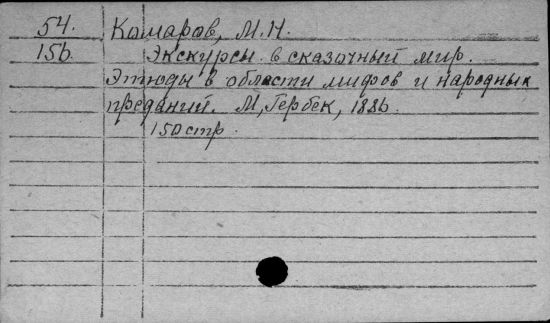 54. Комаров, М.Н.
15б. Экскурсы в сказочный мир.
Этюды в области мифов и народных
преданий. М, Гербек, 1886.
150 стр.